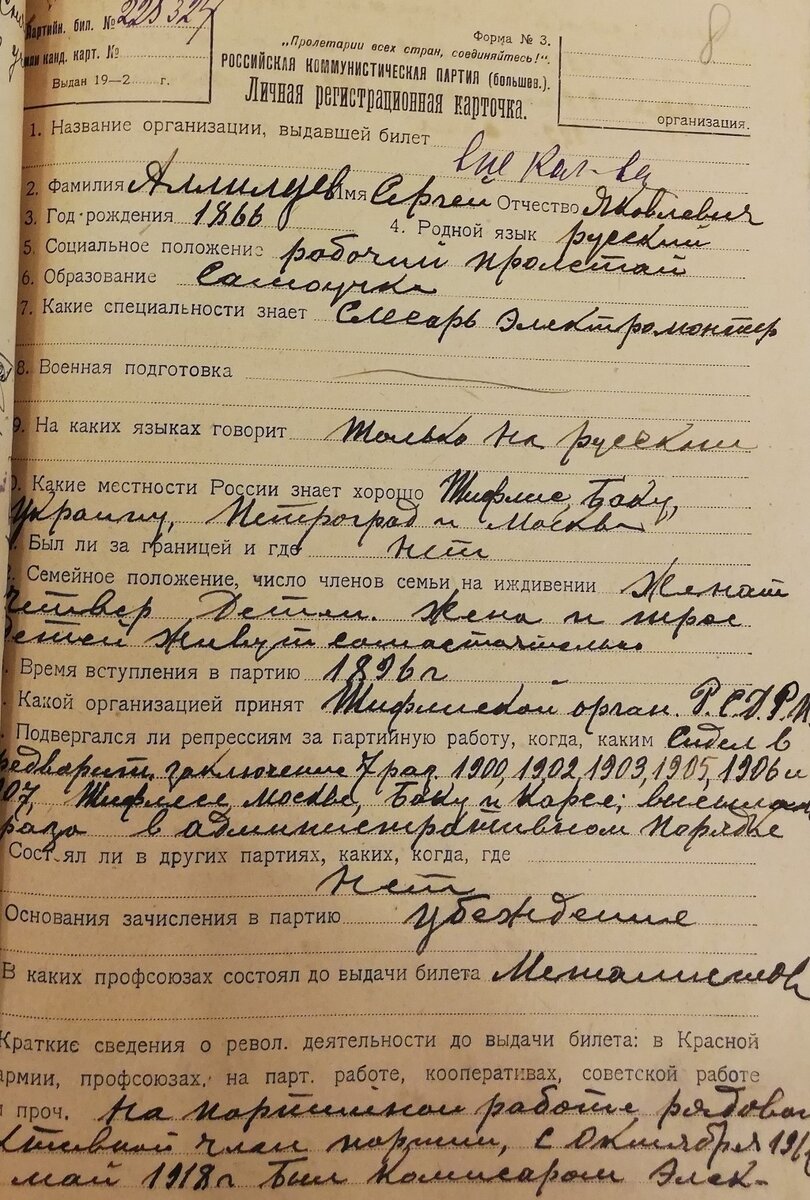 Партийн. бил. № 225327
или канд. карт. №
Выдан 19—2 г.
Форма № 3.
8
„Пролетарии всех стран, соединяйтесь!".
РОССИЙСКАЯ КОММУНИСТИЧЕСКАЯ ПАРТИЯ (большев.).
Личная регистрационная карточка.
организация.
1. Название организации, выдавшей билет
2. Фамилия Аллилуев Имя Сергей Отчество Яковлевич
3. Год рождения 1866 4. Родной язык русский
5. Социальное положение рабочий пролетай
6. Образование Самоучка
7. Какие специальности знает Слесарь Электромонтер
8. Военная подготовка
9. На каких языках говорит только на русском
0. Какие местности России знает хорошо Тифлис, Баку,
Украину, Петроград и Москва
Был ли за границей и где нет
Семейное положение, число членов семьи на иждивении Женат
четвер детей. Жена и трое
детей живут самостоятельно
Время вступления в партию 1896 г
Какой организацией принят Тифлиской орган. Р.С.Д.Р.П
Подвергался ли репрессиям за партийную работу, когда, каким Сидел в
редварит. заключение 7 раз. 1900, 1902, 1903, 1905, 1906 и
07, Тифлесе, Москве, Баку и Карсе;
раза в административном порядке
Сост.ял ли в других партиях, каких, когда, где
Нет
Основания зачисления в партию убеждение
В каких профсоюзах состоял до выдачи билета Металистов
Краткие сведения о револ. деятельности до выдачи билета: в Красной
армии, профсоюзах, на парт. работе, кооперативах, советской работе
и проч. На партийной работе рядовой
активной член партии, с Октября
май 1918 г был комисаром Элек-